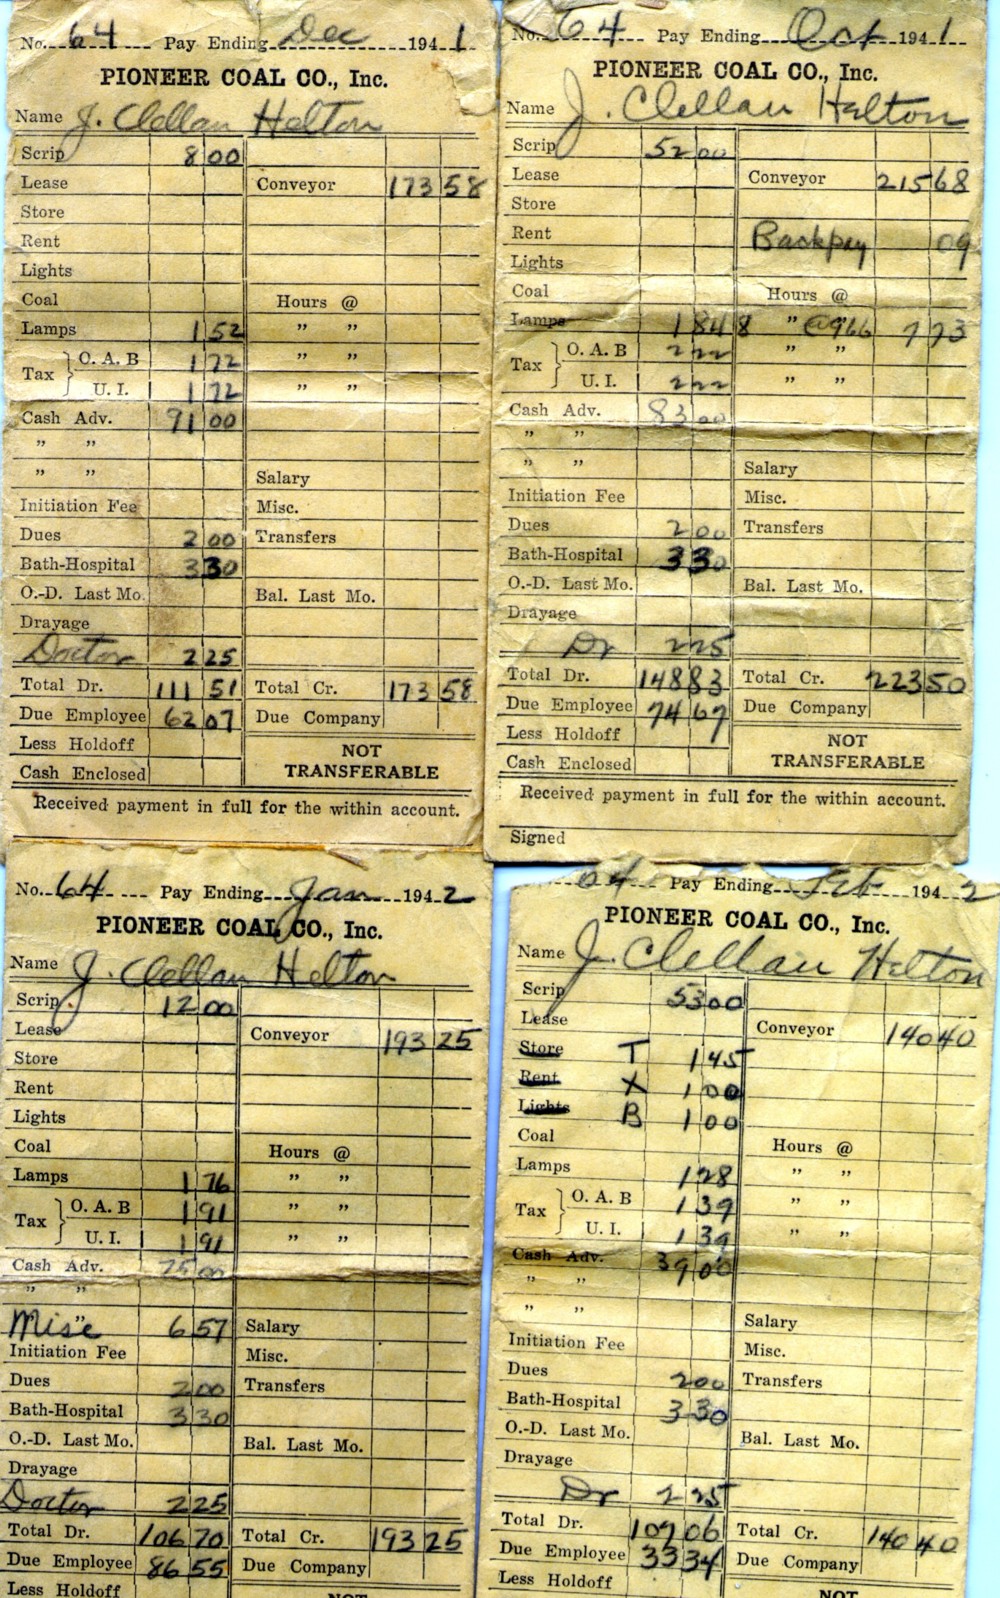 No. 64 Pay Ending Dec 1941
PIONEER COAL CO., Inc.
Name J. Clellan Helton
Scrip 8 00
Lease Conveyor 173 58
Store
Rent
Lights
Coal Hours @
Lamps 1 52 " "
Tax O. A. B 1 72 " "
U. I. 1 72 " "
Cash Adv. 91 00
" "
" " Salary
Initiation Fee Misc.
Dues 2 00 Transfers
Bath-Hospital 3 30
O.-D. Last Mo. Bal. Last Mo.
Drayage
Doctor 2 25
Total Dr. 111 51 Total Cr. 173 58
Due Employee 62 07 Due Company
Less Holdoff NOT
Cash Enclosed TRANSFERABLE
Received payment in full for the within account.
No. 64 Pay Ending Oct 1941
PIONEER COAL CO., Inc.
Name J. Clellan Helton
Scrip 52 00
Lease Conveyor 215 68
Store
Rent Backpay 09
Lights
Coal Hours @
Lamps 1 84 8 " @966 7 73
Tax O. A. B 2 22 " "
U. I. 2 22 " "
Cash Adv. 83 00
" "
" " Salary
Initiation Fee Misc.
Dues 2 00 Transfers
Bath-Hospital 3 30
O.-D. Last Mo. Bal. Last Mo.
Drayage
Dr 2 25
Total Dr. 148 83 Total Cr. 223 50
Due Employee 74 67 Due Company
Less Holdoff NOT
Cash Enclosed TRANSFERABLE
Received payment in full for the within account.
Signed
No. 64 Pay Ending Jan 1942
PIONEER COAL CO., Inc.
Name J. Clellan Helton
Scrip 12 00
Lease Conveyor 193 25
Store
Rent
Lights
Coal Hours @
Lamps 1 76 " "
Tax O. A. B 1 91 " "
U. I. 1 91 " "
Cash Adv. 75 00
" "
Misc 6 57 Salary
Initiation Fee Misc.
Dues 2 00 Transfers
Bath-Hospital 3 30
O.-D. Last Mo. Bal. Last Mo.
Drayage
Doctor 2 25
Total Dr. 106 70 Total Cr. 193 25
Due Employee 86 55 Due Company
Less Holdoff NOT
64 Pay Ending Feb 1942
PIONEER COAL CO., Inc.
Name J. Clellan Helton
Scrip 53 00
Lease Conveyor 140 40
Store T 1 45
Rent X 1 00
Lights B 1 00
Coal Hours @
Lamps 1 28 " "
Tax O. A. B 1 39 " "
U. I. 1 39 " "
Cash Adv. 39 00
" "
" " Salary
Initiation Fee Misc.
Dues 2 00 Transfers
Bath-Hospital 3 30
O.-D. Last Mo. Bal. Last Mo.
Drayage
Dr 2 25
Total Dr. 107 06 Total Cr. 140 40
Due Employee 33 34 Due Company
Less Holdoff NOT